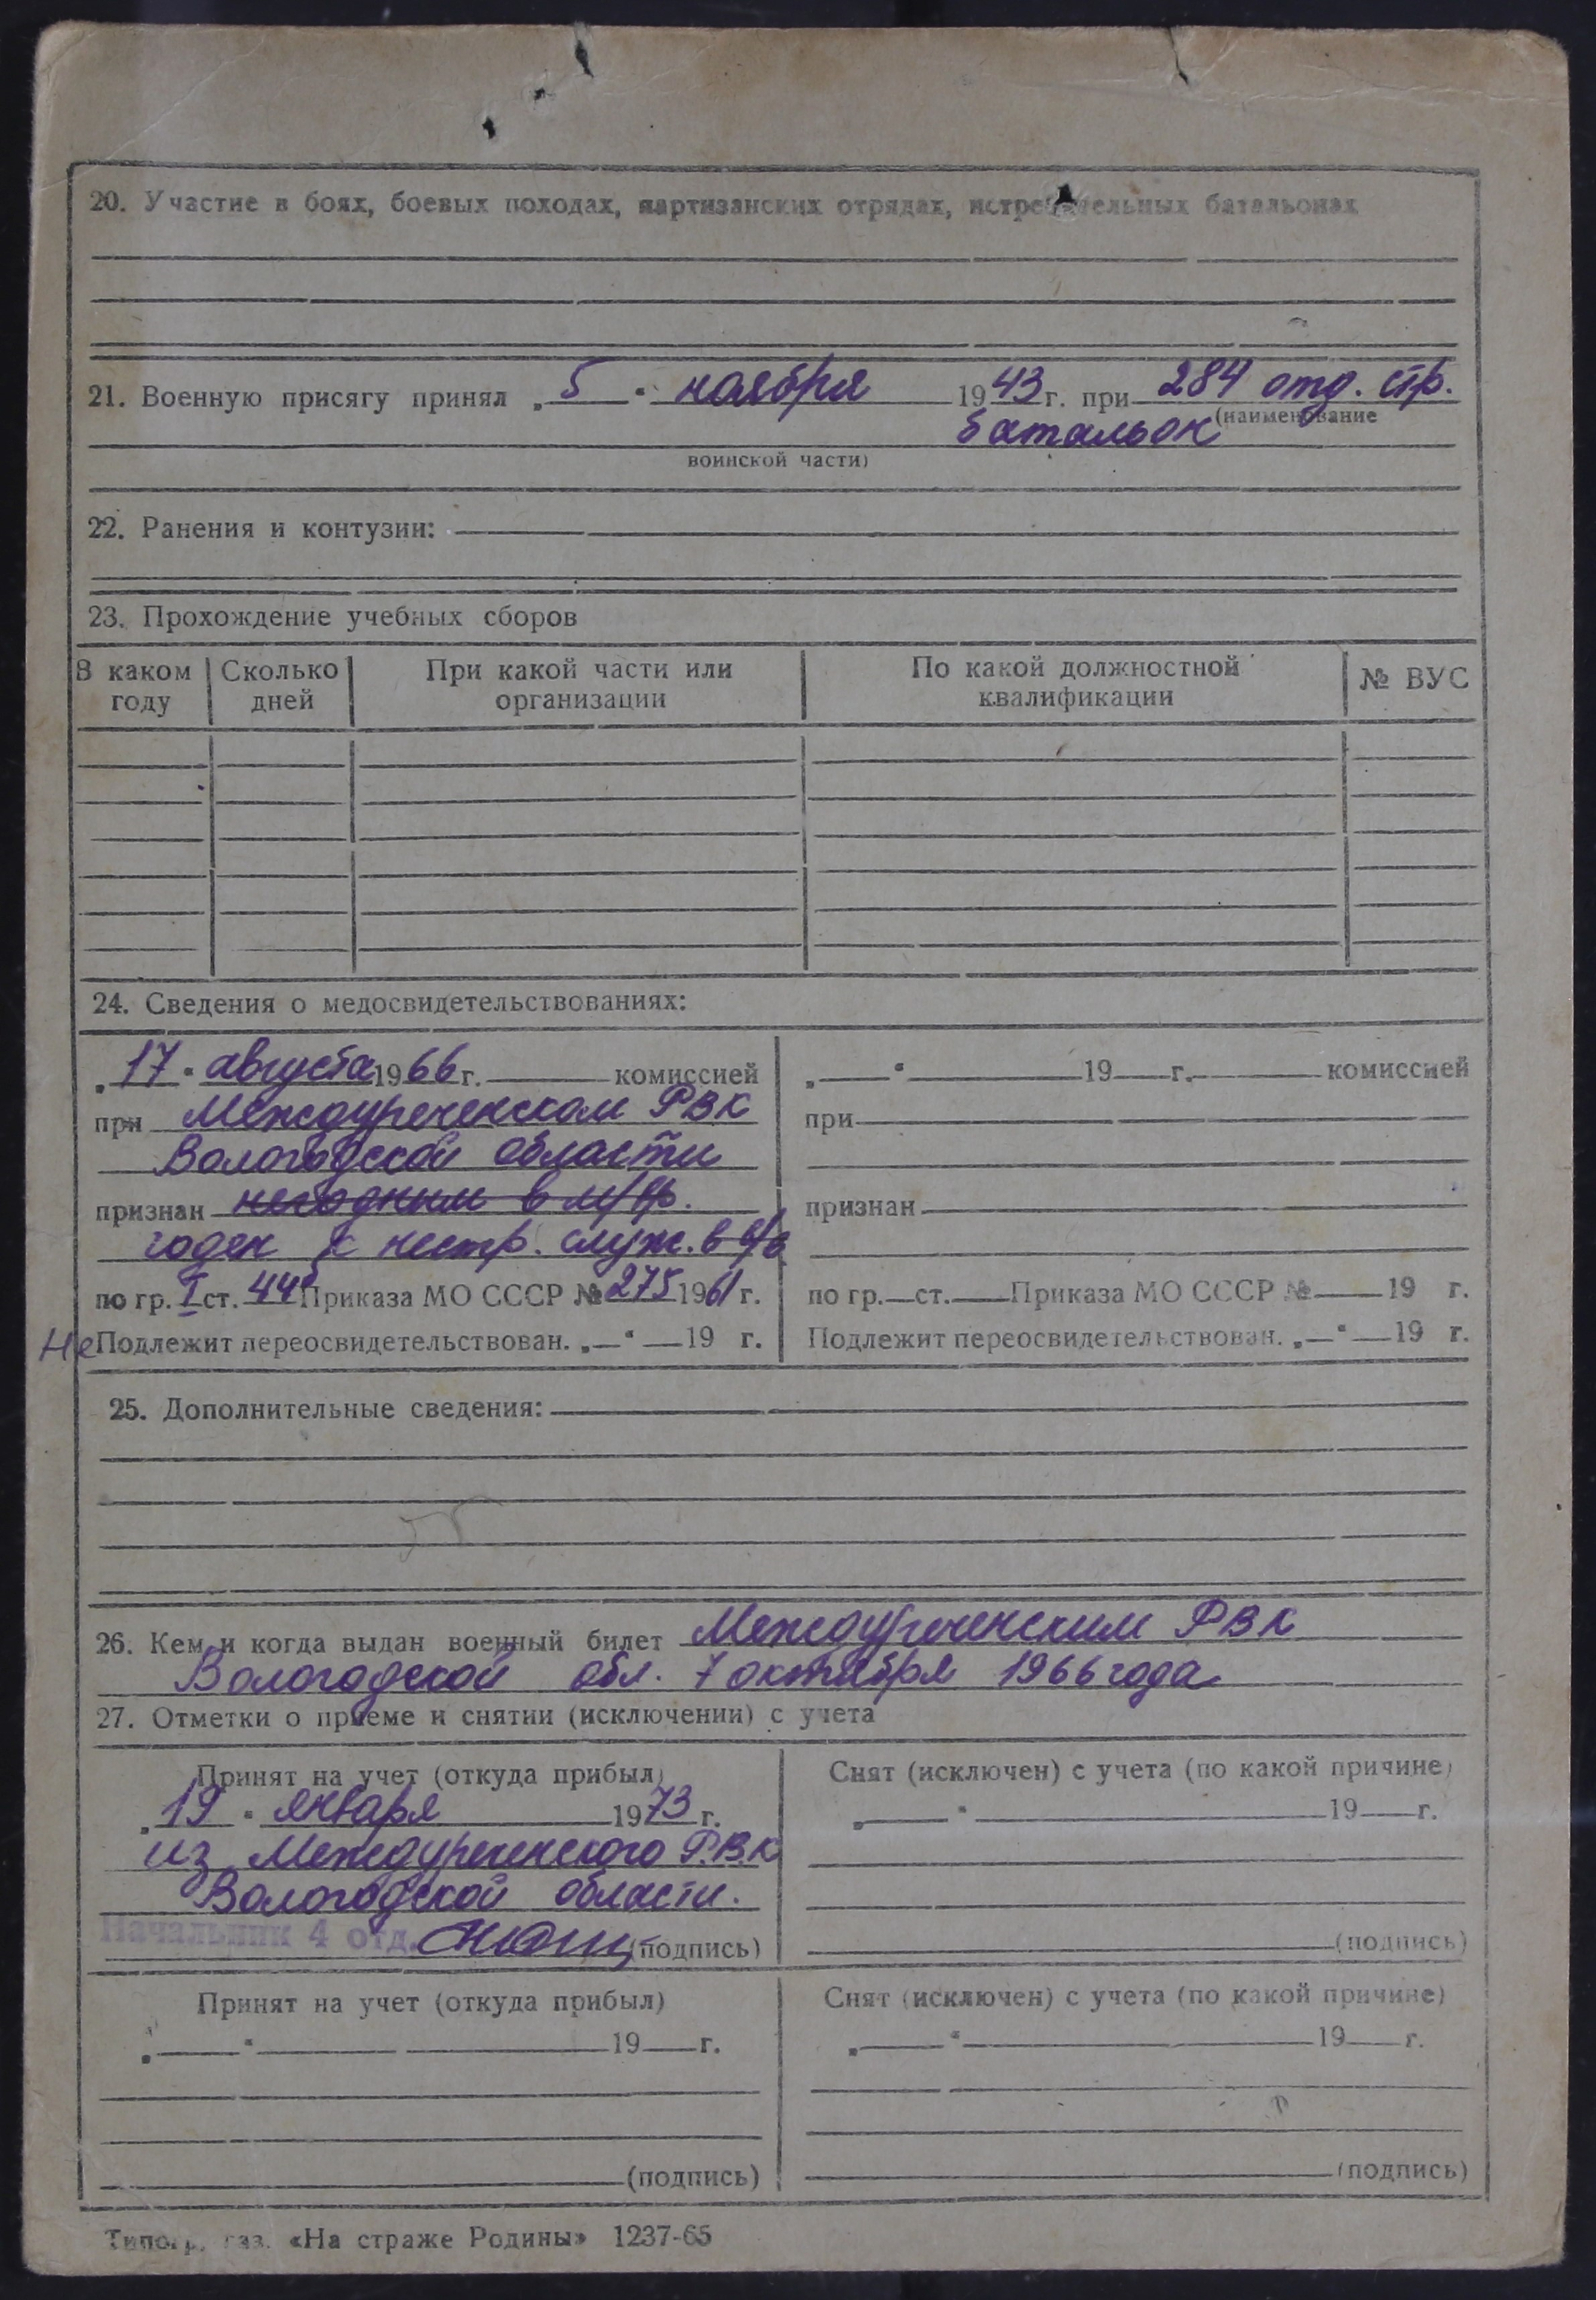 20. Участие в боях, боевых походах, партизанских отрядах, истребительных батальонах
21. Военную присягу принял „ 5 “ ноября 1943 г. при 284 отд. стр.
(наименование
батальон
воинской части)
22. Ранения и контузии:
23. Прохождение учебных сборов
В каком году | Сколько дней | При какой части или организации | По какой должностной квалификации | № ВУС
24. Сведения о медосвидетельствованиях:
„ 17 “ августа 1966 г. комиссией
при Междуреченском РВК
Вологодской области
признан негодным в м/вр.
годен к нестр. служ. в в/в
по гр. I ст. 44б Приказа МО СССР № 275 1961 г.
Не Подлежит переосвидетельствован. „ “ 19 г.
„ “ 19 г. комиссией
при
признан
по гр. ст. Приказа МО СССР № 19 г.
Подлежит переосвидетельствован. „ “ 19 г.
25. Дополнительные сведения:
26. Кем и когда выдан военный билет Междуреченским РВК
Вологодской обл. 7 октября 1966 года
27. Отметки о приеме и снятии (исключении) с учета
Принят на учет (откуда прибыл)
„ 19 “ января 1973 г.
из Междуреченского Р.В.К
Вологодской области.
Начальник 4 отд. (подпись)
Снят (исключен) с учета (по какой причине)
„ “ 19 г.
(подпись)
Принят на учет (откуда прибыл)
„ “ 19 г.
(подпись)
Снят (исключен) с учета (по какой причине)
„ “ 19 г.
(подпись)
Типогр. газ. «На страже Родины» 1237-65